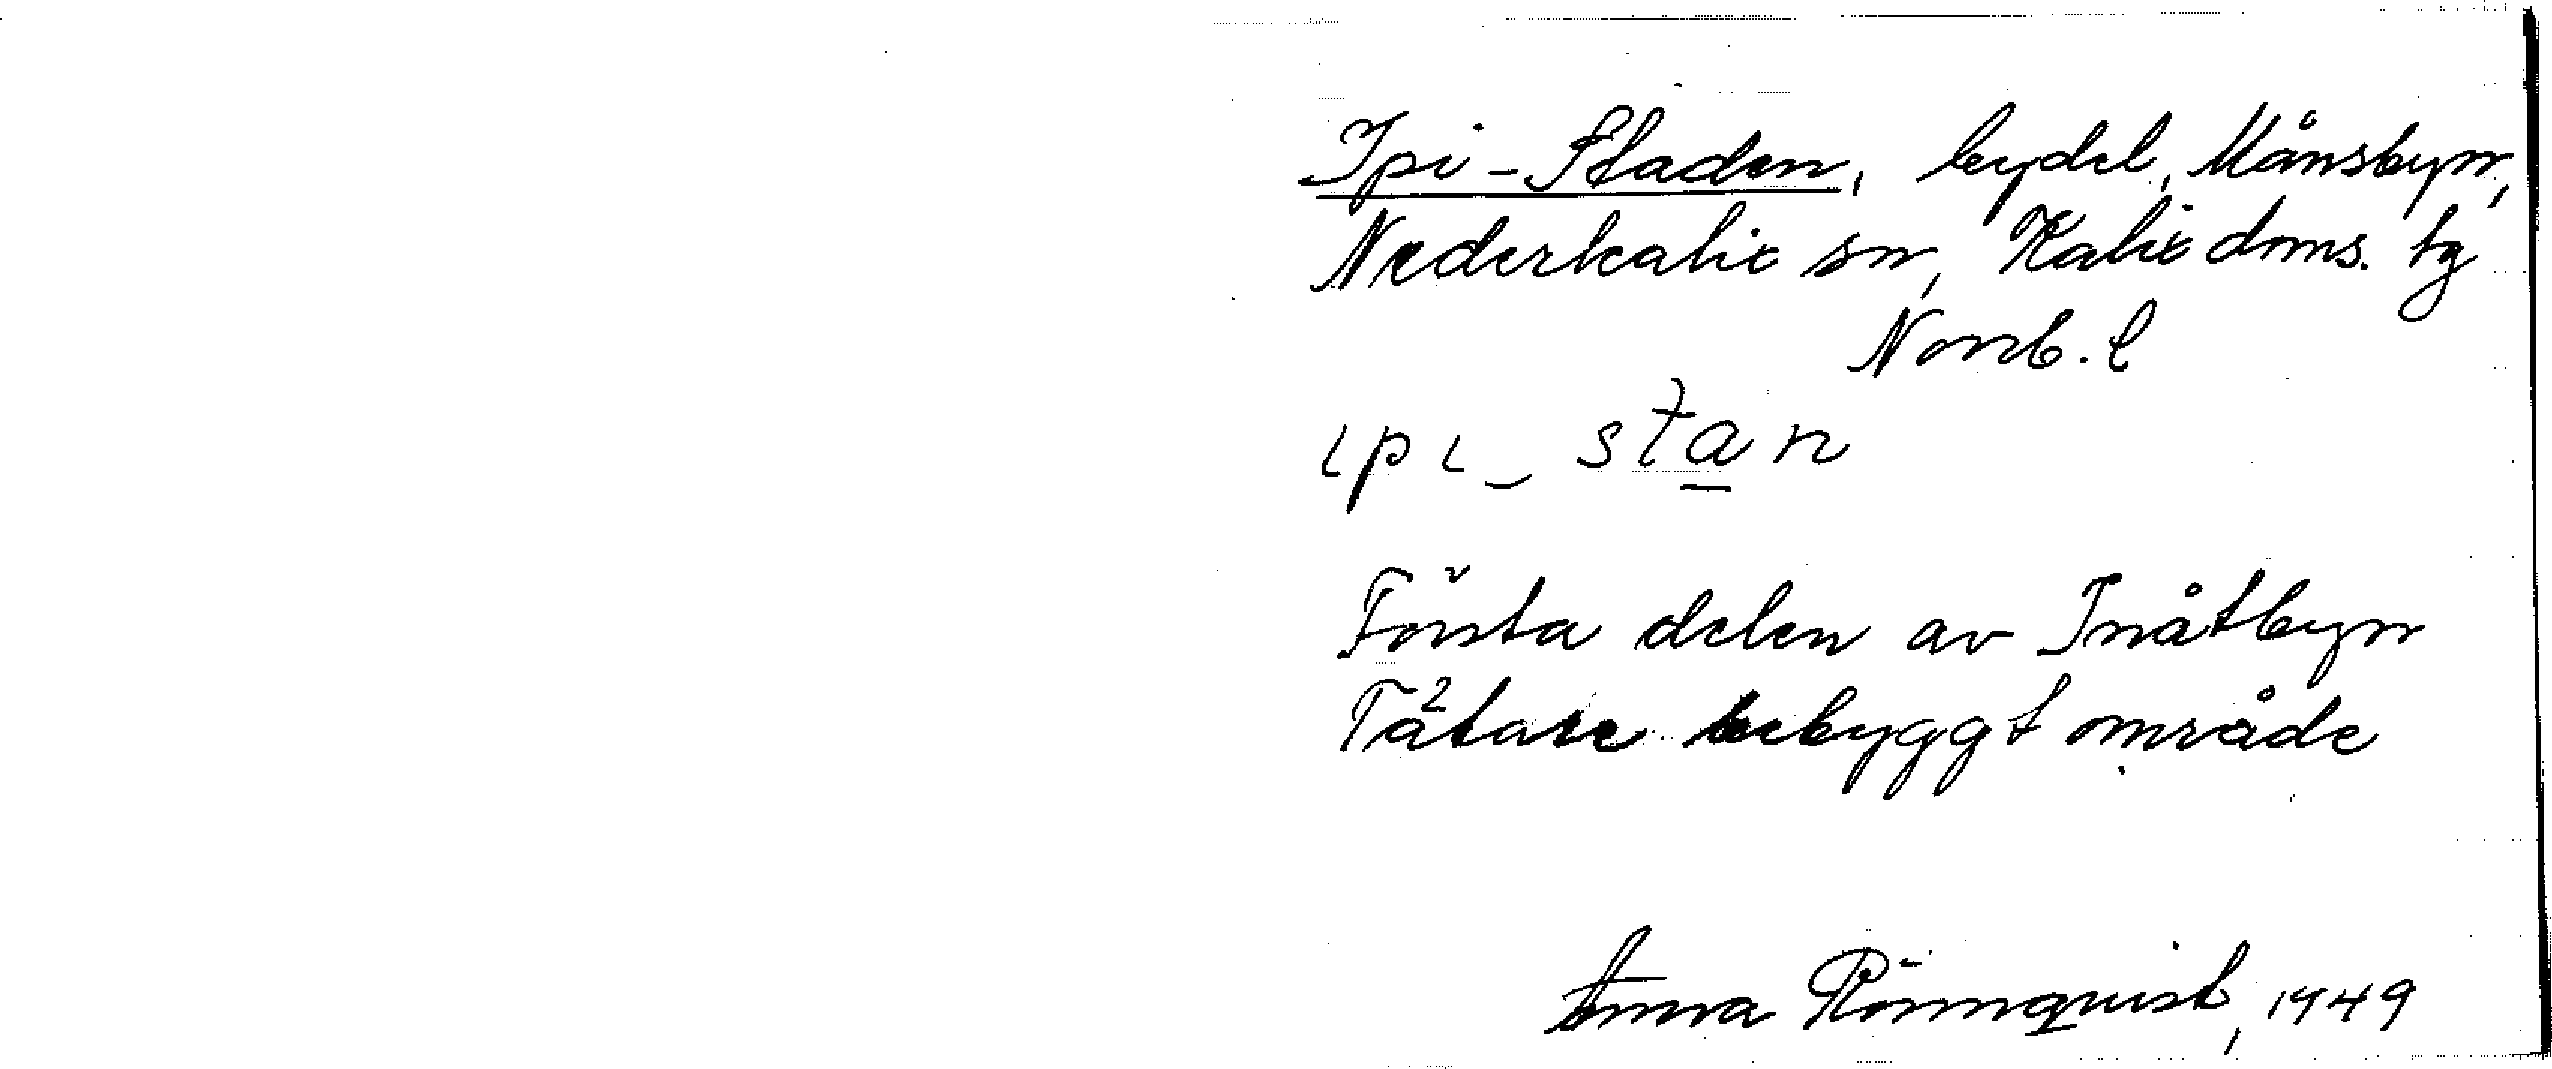 Ipi-Staden, bydel, Månsbyn,
Nederkalix sn, Kalix doms. tg
Norrb. l
ιpι_stan
Första delen av Inåtbyn
Tätare bebyggt område
Anna Rönnquist, 1949